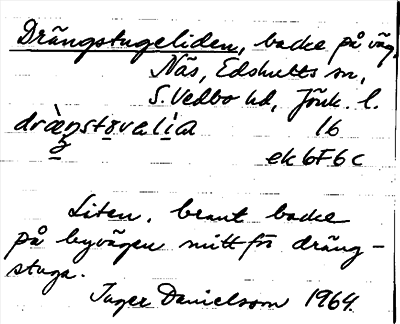 Drängstugeliden, backe på väg,
Näs, Edshults sn,
S. Vedbo hd, Jönk. l.
dræ̀ŋstovalia 16
ek 6F6c
Liten, brant backe
på byvägen mitt frö dräng-
stuga.
Inger Danielsson 1964.